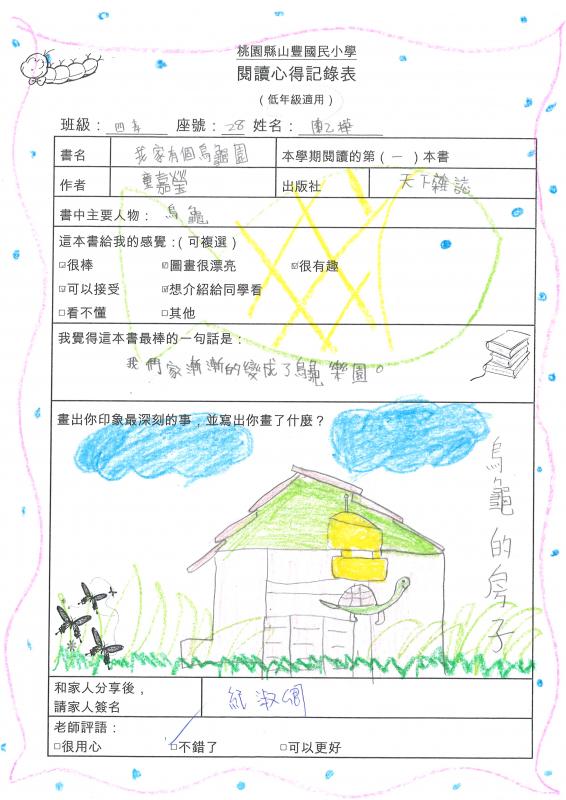 桃園縣山豐國民小學
閱讀心得記錄表
（低年級適用）
班級：四孝 座號：28 姓名：
書名 我家有個烏龜園 本學期閱讀的第（一）本書
作者 童嘉瑩 出版社 天下雜誌
書中主要人物：烏龜
這本書給我的感覺：（可複選）
☑很棒 ☑圖畫很漂亮 ☑很有趣
☑可以接受 ☑想介紹給同學看
□看不懂 □其他
我覺得這本書最棒的一句話是：
我們家漸漸的變成了烏龜樂園。
畫出你印象最深刻的事，並寫出你畫了什麼？
烏龜的房子
和家人分享後，
請家人簽名
老師評語：
□很用心 ☑不錯了 □可以更好